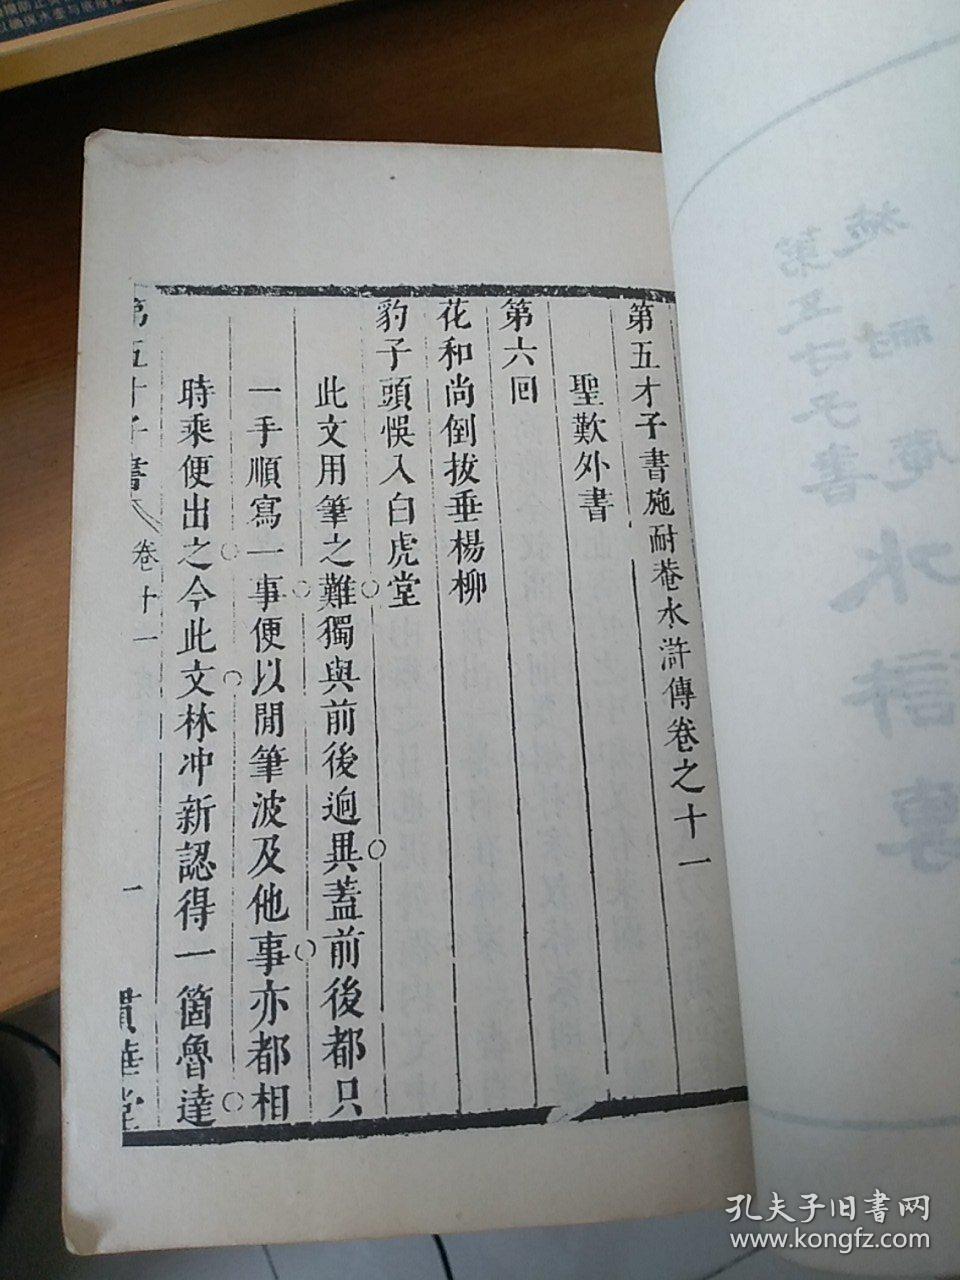 第五才子書施耐菴水滸傳卷之十一
聖歎外書
第六回
花和尚倒拔垂楊柳
豹子頭悞入白虎堂
此文用筆之難獨與前後逈異蓋前後都只
一手順寫一事便以閒筆波及他事亦都相
時乘便出之今此文林冲新認得一箇魯達
第五才子書
卷十一
一
貫華堂
施耐庵水滸傳
第五才子書
孔夫子旧书网
www.kongfz.com